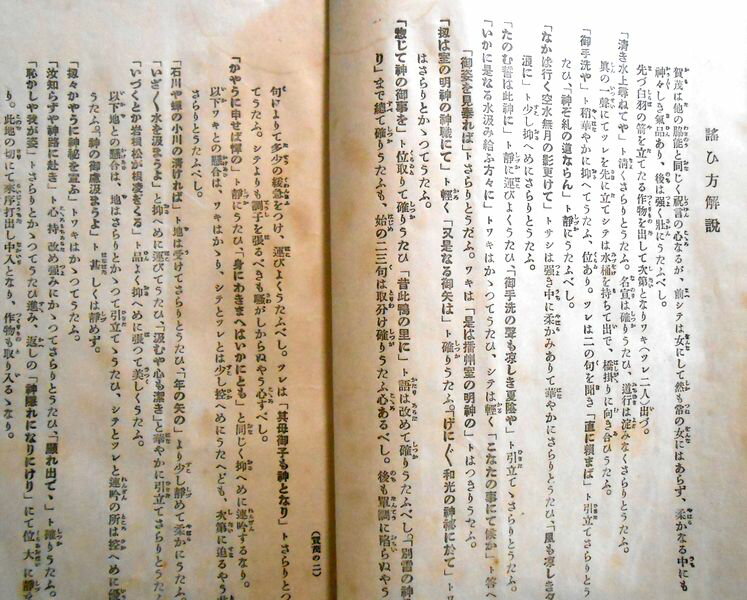 謠ひ方解說
賀茂は他の脇能と同じく祝言の心なるが、前シテは女にして然も常の女にはあらず、柔かなる中にも
神々しき氣品あり、後は强く壯にうたふべし。
先づ白羽の箭を立てたる作物を出して次第となりワキ(ワキツレ二人)出づ。
眞の一聲にてツレを先に立てシテは水桶を持ちて出で、橋掛りに向き合ひうたふ。
「淸き水上尋ねてや」ト淸くさらりとうたふ。名宣は確りうたひ、道行は淀みなくさらりとうたふべし。
「御手洗や」ト稍華やかに抑へてうたふ、位あり。ツレは二の句を聞き「直に賴まば」ト引立てさらりとう
たひ、「神ぞ糺の道ならん」ト靜にうたふ。
「なかば行く空水無月の影更けて」トサシは强き中に柔かみありて華やかにさらりとうたひ、「風も凉しき夕
浪に」ト少し抑へめにさらりとうたふ。
「たのむ誓は此神に」ト靜に運びよくうたひ「御手洗の聲も凉しき夏陰や」ト引立てゝさらりとうたふ。
「いかに是なる水汲み給ふ方々に」トワキはかゝつてうたひ、シテは輕く「こなたの事にて候か」ト答へ
「御姿を見奉れば」トさらりとうたふ。ワキは「是は播州室の明神の」トはつきりうたふ。
「扨は室の明神の神職にて」ト輕く「又是なる御矢は」ト確りうたふ。「げに〳〵和光の神祕に於て」トワ
はさらりとかゝつてうたふ。
「惣じて神の御事を」ト位取りて確りうたひ「昔此鴨の里に」ト語は改めて確りうたふべし「別雷の神
り」まで總て確りうたふも、始の二三句は取分け確りうたふ心あるべし。後も單調に陷らぬやう
句によりて多少の緩急をつけ、運びよくうたふべし。ツレは「其母御子も神となり」トさらりとつ
てうたふ。シテよりも調子を張るべきも騷がしからぬやう心すべし。
「かやうに申せば憚の」ト靜にうたひ、「身にわきまへはいかにとも」と同じく抑へめに連吟するなり。
以下ワキとの懸合は、ワキはかゝり、シテとツレとは少し控へめにうたへども、次第に迫るやう
さらりとうたふべし。
「石川や蟬の小川の淸ければ」ト地は受けてさらりとうたひ「年の矢の」より少し靜めて柔かにうたふ。
「いざ〳〵水を汲まうよ」と抑へめに運びてうたひ「汲むや心も潔き」と華やかに引立てさらりとうたふ
「いづくとか岩根松が根凌ぎくる」ト品よく抑へめに張つて美しくうたふ。
以下地との懸合は、地はさらりとかゝつて引立てゝうたひ、シテとツレと連吟の所は控へめに優
うたふ。「神の御慮汲まうよ」ト甚しくは靜めず。
「扨々かやうに神祕を宣ふ」トワキはかゝつてうたふ。
「汝知らずや神路に赴き」ト心持改め强みにかゝつてさらりとうたひ、「顯れ出でゝ」ト確りうたふ。
「恥かしや我が姿」トさらりとかゝつてうたひ進み、返しの「神隱れになりにけり」にて位大に靜
り。此地の切にて來序打出し中入となり、作物も取り入るゝなり。
(賀茂の二)